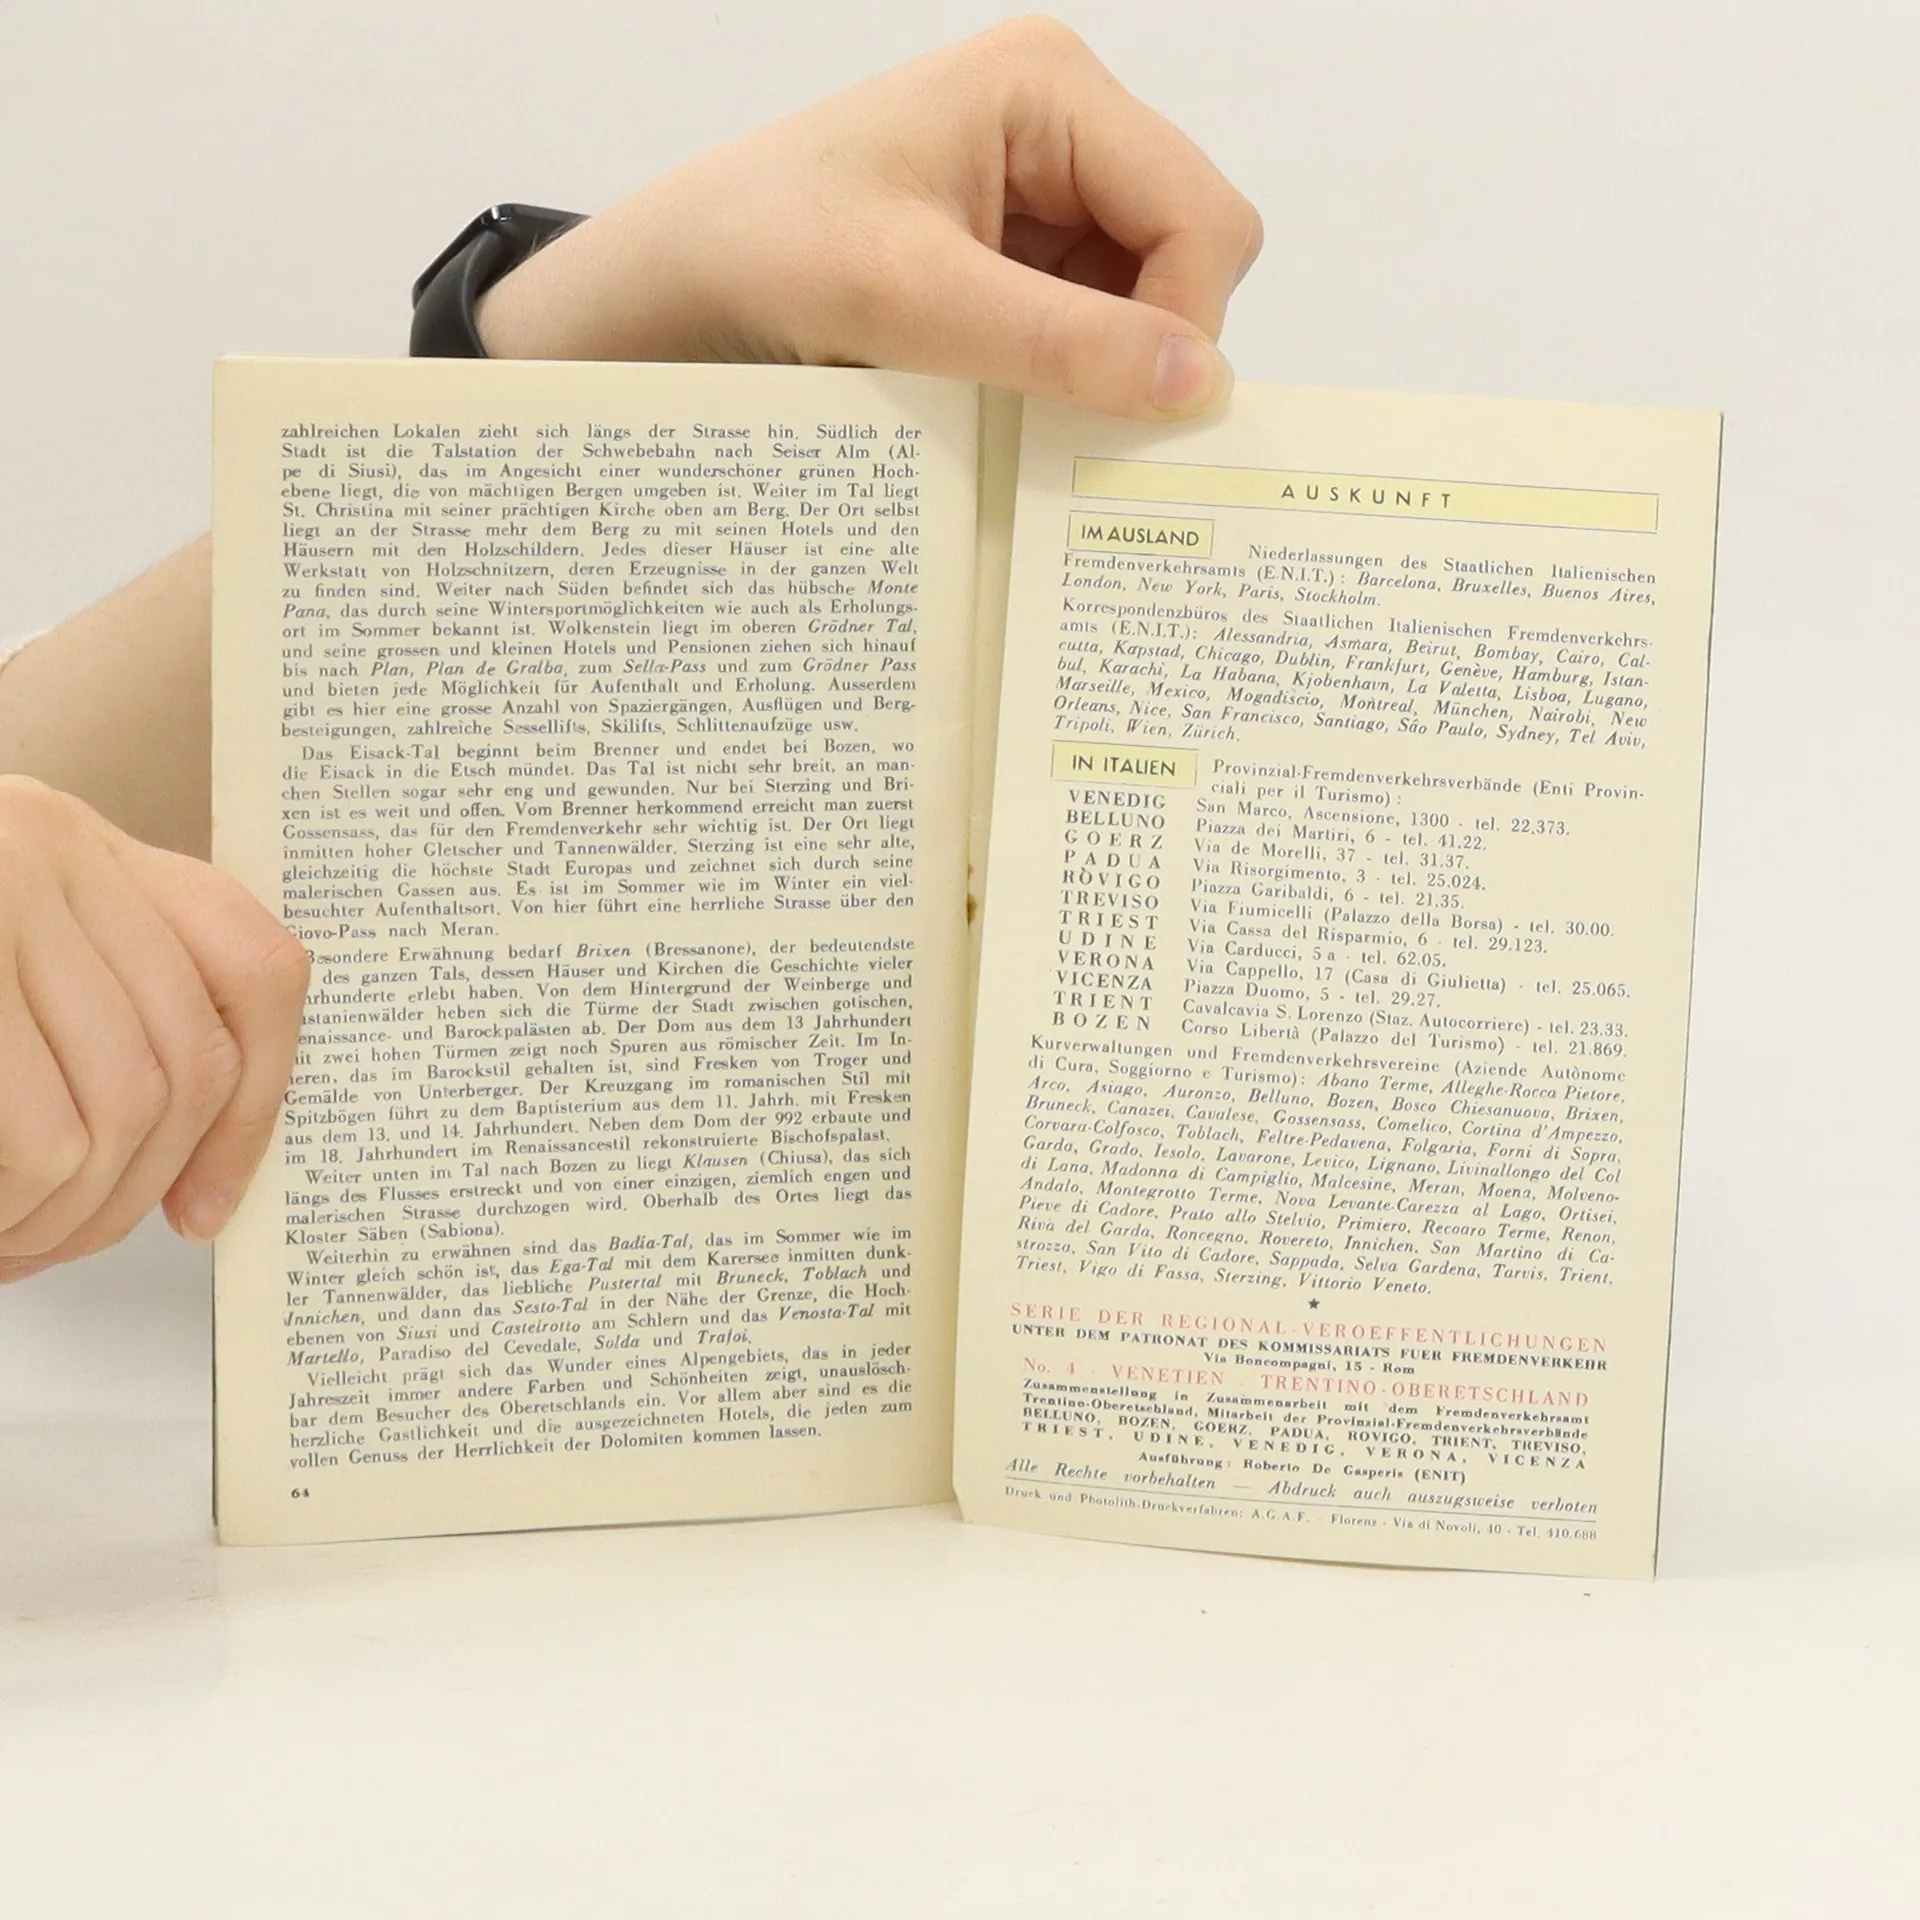 zahlreichen Lokalen zieht sich längs der Strasse hin. Südlich der
Stadt ist die Talstation der Schwebebahn nach Seiser Alm (Al-
pe di Siusi), das im Angesicht einer wunderschöner grünen Hoch-
ebene liegt, die von mächtigen Bergen umgeben ist. Weiter im Tal liegt
St. Christina mit seiner prächtigen Kirche oben am Berg. Der Ort selbst
liegt an der Strasse mehr dem Berg zu mit seinen Hotels und den
Häusern mit den Holzschildern. Jedes dieser Häuser ist eine alte
Werkstatt von Holzschnitzern, deren Erzeugnisse in der ganzen Welt
zu finden sind. Weiter nach Süden befindet sich das hübsche Monte
Pana, das durch seine Wintersportmöglichkeiten wie auch als Erholungs-
ort im Sommer bekannt ist. Wolkenstein liegt im oberen Grödner Tal,
und seine grossen und kleinen Hotels und Pensionen ziehen sich hinauf
bis nach Plan, Plan de Gralba, zum Sella-Pass und zum Grödner Pass
und bieten jede Möglichkeit für Aufenthalt und Erholung. Ausserdem
gibt es hier eine grosse Anzahl von Spaziergängen, Ausflügen und Berg-
besteigungen, zahlreiche Sessellifts, Skilifts, Schlittenaufzüge usw.
Das Eisack-Tal beginnt beim Brenner und endet bei Bozen, wo
die Eisack in die Etsch mündet. Das Tal ist nicht sehr breit, an man-
chen Stellen sogar sehr eng und gewunden. Nur bei Sterzing und Bri-
xen ist es weit und offen. Vom Brenner herkommend erreicht man zuerst
Gossensass, das für den Fremdenverkehr sehr wichtig ist. Der Ort liegt
inmitten hoher Gletscher und Tannenwälder. Sterzing ist eine sehr alte,
gleichzeitig die höchste Stadt Europas und zeichnet sich durch seine
malerischen Gassen aus. Es ist im Sommer wie im Winter ein viel-
besuchter Aufenthaltsort. Von hier führt eine herrliche Strasse über den
Giovo-Pass nach Meran.
Besondere Erwähnung bedarf Brixen (Bressanone), der bedeutendste
des ganzen Tals, dessen Häuser und Kirchen die Geschichte vieler
rhunderte erlebt haben. Von dem Hintergrund der Weinberge und
stanienwälder heben sich die Türme der Stadt zwischen gotischen,
enaissance- und Barockpalästen ab. Der Dom aus dem 13 Jahrhundert
it zwei hohen Türmen zeigt noch Spuren aus römischer Zeit. Im In-
neren, das im Barockstil gehalten ist, sind Fresken von Troger und
Gemälde von Unterberger. Der Kreuzgang im romanischen Stil mit
Spitzbögen führt zu dem Baptisterium aus dem 11. Jahrh. mit Fresken
aus dem 13. und 14. Jahrhundert. Neben dem Dom der 992 erbaute und
im 18. Jahrhundert im Renaissancestil rekonstruierte Bischofspalast.
Weiter unten im Tal nach Bozen zu liegt Klausen (Chiusa), das sich
längs des Flusses erstreckt und von einer einzigen, ziemlich engen und
malerischen Strasse durchzogen wird. Oberhalb des Ortes liegt das
Kloster Säben (Sabiona).
Weiterhin zu erwähnen sind das Badia-Tal, das im Sommer wie im
Winter gleich schön ist, das Ega-Tal mit dem Karersee inmitten dunk-
ler Tannenwälder, das liebliche Pustertal mit Bruneck, Toblach und
Innichen, und dann das Sesto-Tal in der Nähe der Grenze, die Hoch-
ebenen von Siusi und Castelrotto am Schlern und das Venosta-Tal mit
Martello, Paradiso del Cevedale, Solda und Trafoi.
Vielleicht prägt sich das Wunder eines Alpengebiets, das in jeder
Jahreszeit immer andere Farben und Schönheiten zeigt, unauslösch-
bar dem Besucher des Oberetschlands ein. Vor allem aber sind es die
herzliche Gastlichkeit und die ausgezeichneten Hotels, die jeden zum
vollen Genuss der Herrlichkeit der Dolomiten kommen lassen.
64
AUSKUNFT
IM AUSLAND
Niederlassungen des Staatlichen Italienischen
Fremdenverkehrsamts (E.N.I.T.) : Barcelona, Bruxelles, Buenos Aires,
London, New York, Paris, Stockholm.
Korrespondenzbüros des Staatlichen Italienischen Fremdenverkehrs-
amts (E.N.I.T.): Alessandria, Asmara, Beirut, Bombay, Cairo, Cal-
cutta, Kapstad, Chicago, Dublin, Frankfurt, Genève, Hamburg, Istan-
bul, Karachi, La Habana, Kjobenhavn, La Valetta, Lisboa, Lugano,
Marseille, Mexico, Mogadiscio, Montreal, München, Nairobi, New
Orleans, Nice, San Francisco, Santiago, São Paulo, Sydney, Tel Aviv,
Tripoli, Wien, Zürich.
IN ITALIEN
Provinzial-Fremdenverkehrsverbände (Enti Provin-
ciali per il Turismo) :
VENEDIG San Marco, Ascensione, 1300 - tel. 22.373.
BELLUNO Piazza dei Martiri, 6 - tel. 41.22.
GOERZ Via de Morelli, 37 - tel. 31.37.
PADUA Via Risorgimento, 3 - tel. 25.024.
ROVIGO Piazza Garibaldi, 6 - tel. 21.35.
TREVISO Via Fiumicelli (Palazzo della Borsa) - tel. 30.00.
TRIEST Via Cassa del Risparmio, 6 - tel. 29.123.
UDINE Via Carducci, 5 a - tel. 62.05.
VERONA Via Cappello, 17 (Casa di Giulietta) - tel. 25.065.
VICENZA Piazza Duomo, 5 - tel. 29.27.
TRIENT Cavalcavia S. Lorenzo (Staz. Autocorriere) - tel. 23.33.
BOZEN Corso Libertà (Palazzo del Turismo) - tel. 21.869.
Kurverwaltungen und Fremdenverkehrsvereine (Aziende Autònome
di Cura, Soggiorno e Turismo): Abano Terme, Alleghe-Rocca Pietore,
Arco, Asiago, Auronzo, Belluno, Bozen, Bosco Chiesanuova, Brixen,
Bruneck, Canazei, Cavalese, Gossensass, Comelico, Cortina d'Ampezzo,
Corvara-Colfosco, Toblach, Feltre-Pedavena, Folgaria, Forni di Sopra,
Garda, Grado, Iesolo, Lavarone, Levico, Lignano, Livinallongo del Col
di Lana, Madonna di Campiglio, Malcesine, Meran, Moena, Molveno-
Andalo, Montegrotto Terme, Nova Levante-Carezza al Lago, Ortisei,
Pieve di Cadore, Prato allo Stelvio, Primiero, Recoaro Terme, Renon,
Riva del Garda, Roncegno, Rovereto, Innichen, San Martino di Ca-
strozza, San Vito di Cadore, Sappada, Selva Gardena, Tarvis, Trient,
Triest, Vigo di Fassa, Sterzing, Vittorio Veneto.
SERIE DER REGIONAL-VEROEFFENTLICHUNGEN
UNTER DEM PATRONAT DES KOMMISSARIATS FUER FREMDENVERKEHR
Via Boncompagni, 15 - Rom
No. 4 - VENETIEN - TRENTINO-OBERETSCHLAND
Zusammenstellung in Zusammenarbeit mit dem Fremdenverkehrsamt
Trentino-Oberetschland, Mitarbeit der Provinzial-Fremdenverkehrsverbände
BELLUNO, BOZEN, GOERZ, PADUA, ROVIGO, TRIENT, TREVISO,
TRIEST, UDINE, VENEDIG, VERONA, VICENZA
Ausführung: Roberto De Gasperis (ENIT)
Alle Rechte vorbehalten — Abdruck auch auszugsweise verboten
Druck und Photolith-Druckverfahren: A.G.A.F. - Florenz - Via di Novoli, 40 - Tel. 410.688